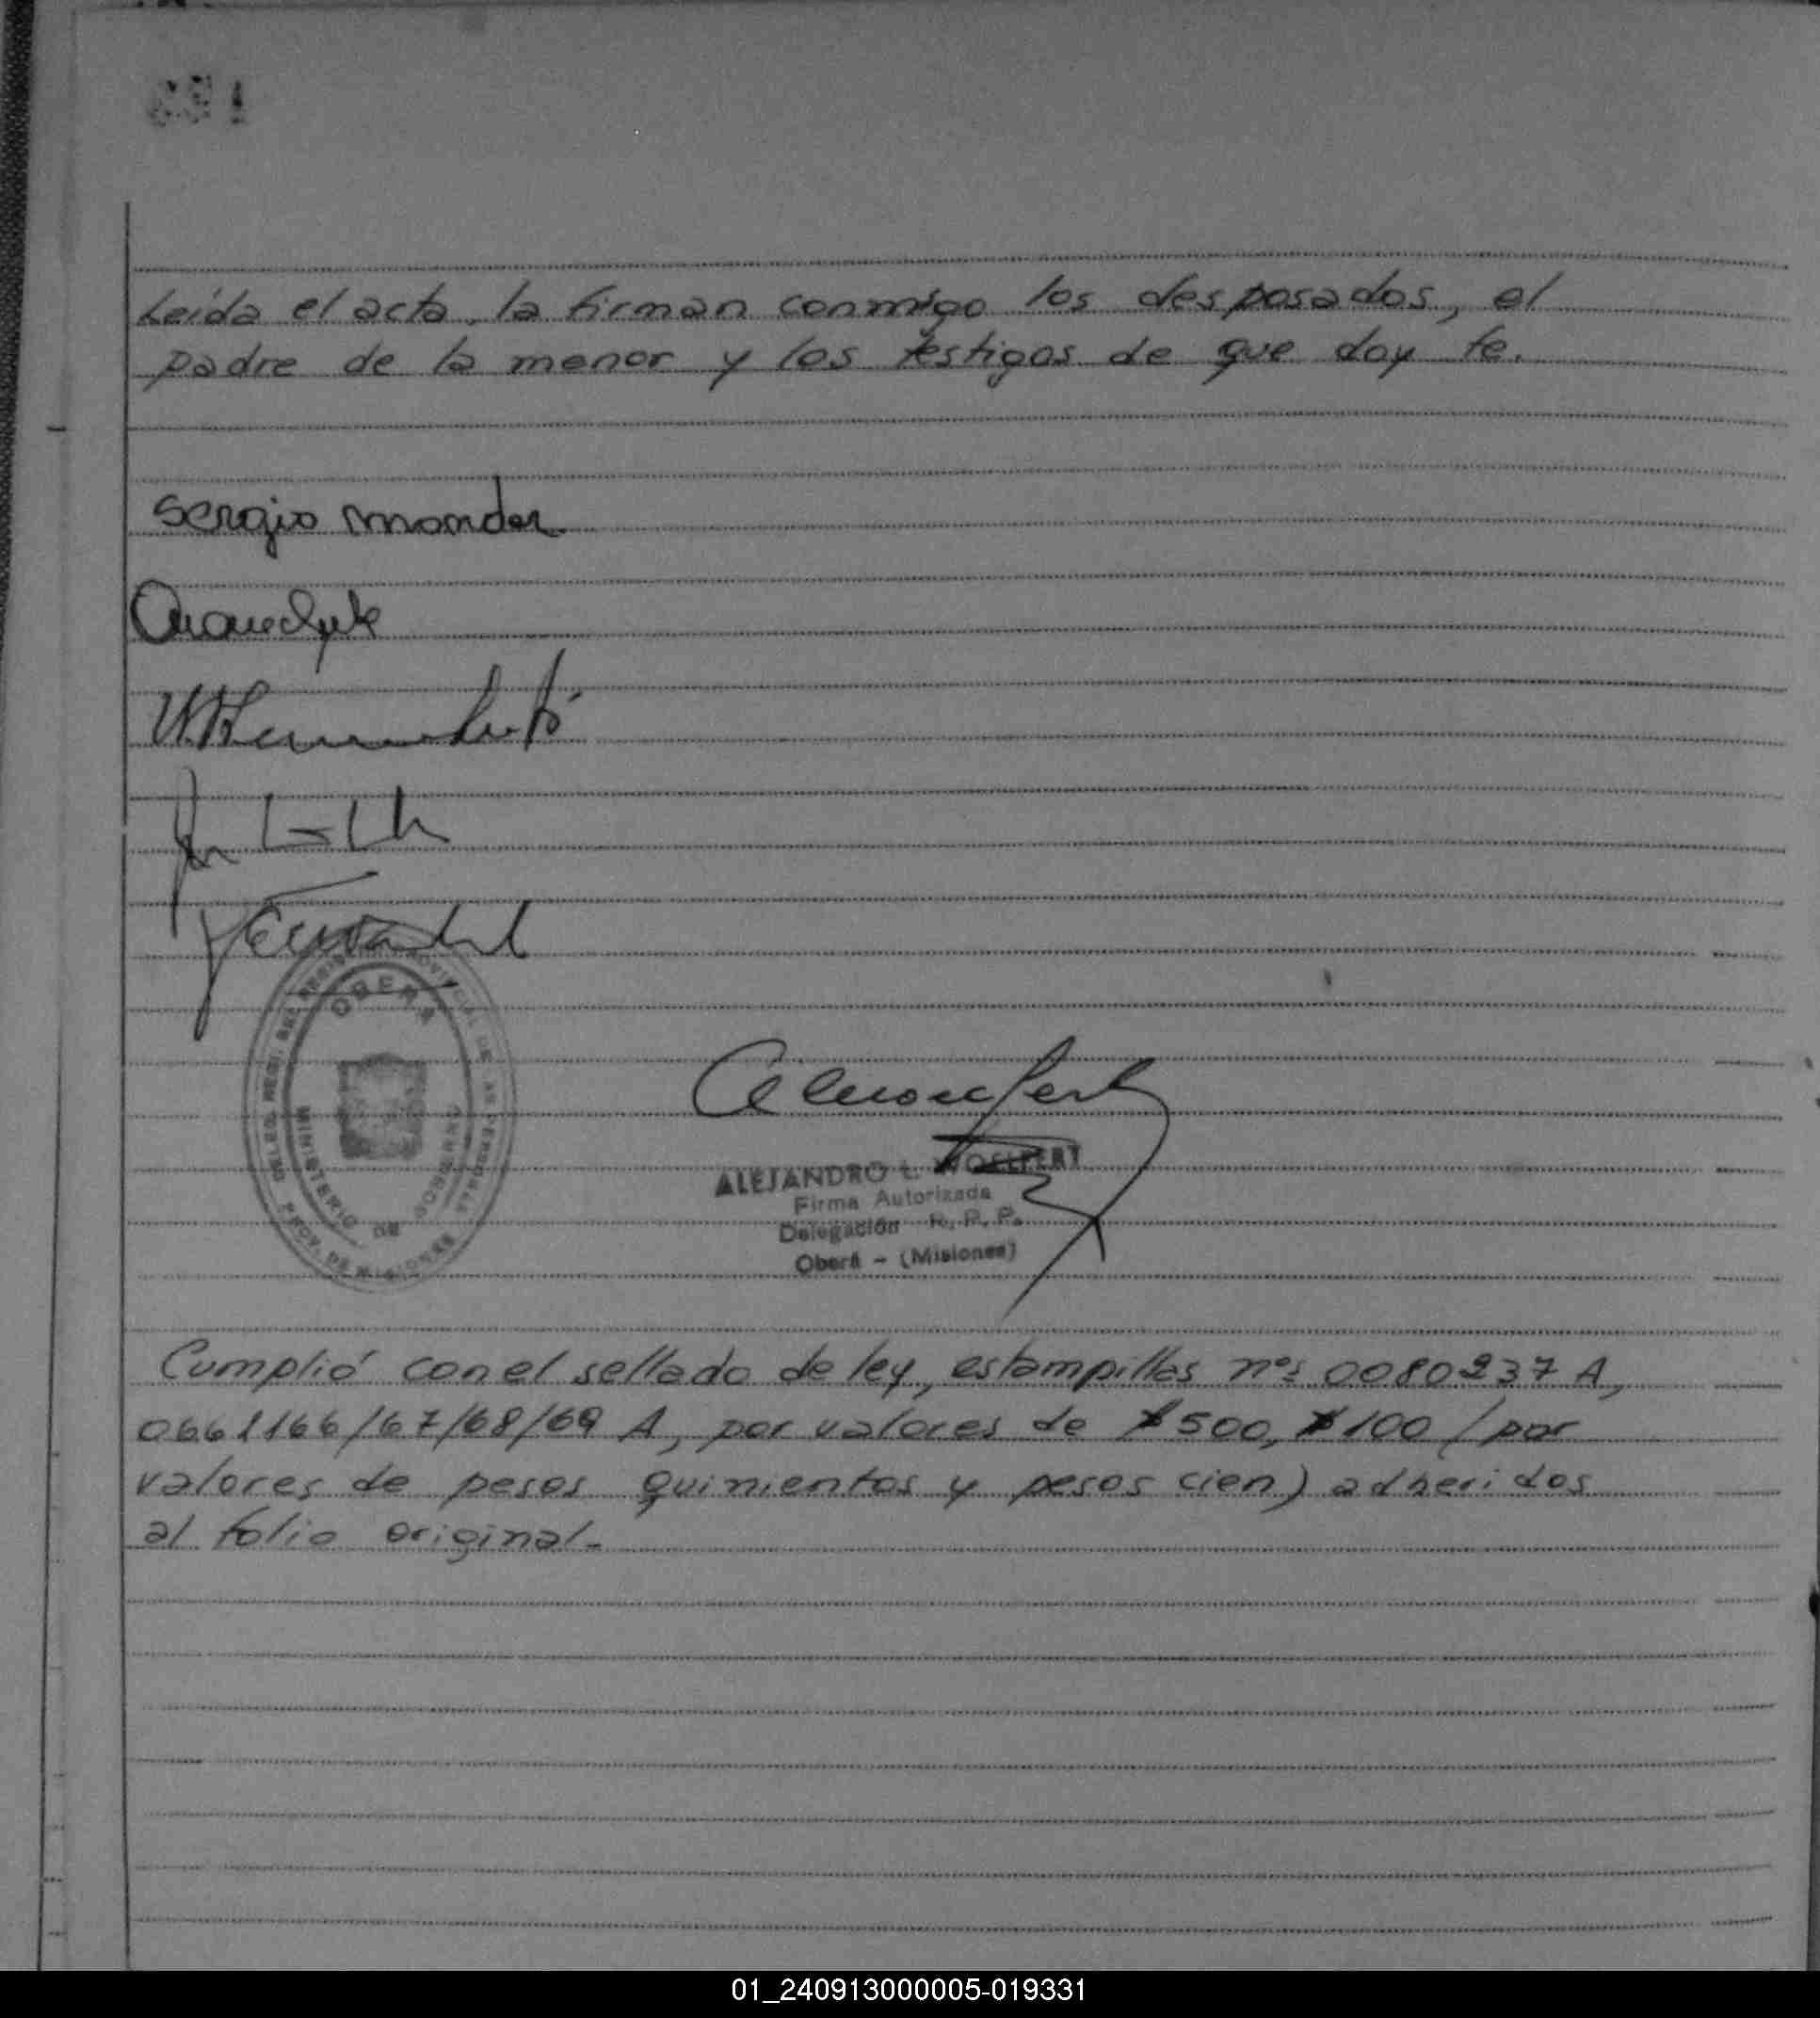 Leída el acta, la firman conmigo los desposados, el
padre de la menor y los testigos de que doy fe.
Sergio
OBERA
MINISTERIO DE GOBIERNO
PROV. DE MISIONES
ALEJANDRO L. WOELFERT
Firma Autorizada
Delegación R. P. P.
Oberá - (Misiones)
Cumplió con el sellado de ley, estampillas nos 0080237 A,
0661166/67/68/69 A, por valores de $500, $100 (por
valores de pesos quinientos y pesos cien) adheridos
al folio original.
01_240913000005-019331